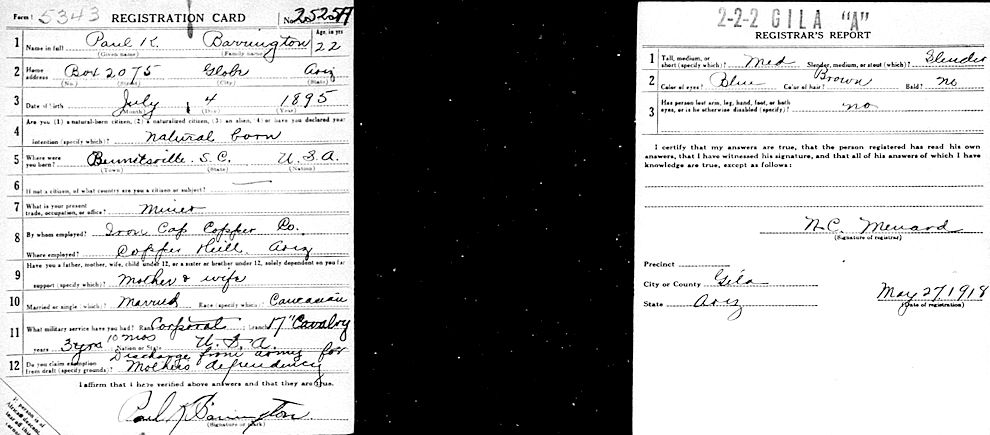 Form 1 5343 REGISTRATION CARD No. 25254
1 Name in full Paul K. Barrington Age, in yrs 22
(Given name) (Family name)
2 Home address Box 2075 Globe Ariz
(No.) (Street) (City) (State)
3 Date of birth July 4 1895
(Month) (Day) (Year)
4 Are you (1) a natural-born citizen, (2) a naturalized citizen, (3) an alien, (4) or have you declared your
intention (specify which)? natural born
5 Where were you born? Bennitsville S.C. U.S.A.
(Town) (State) (Nation)
6 If not a citizen, of what country are you a citizen or subject?
7 What is your present trade, occupation, or office? Miner
8 By whom employed? Iron Cap Copper Co.
Where employed? Copper Hill, Ariz
9 Have you a father, mother, wife, child under 12, or a sister or brother under 12, solely dependent on you for
support (specify which)? Mother & wife
10 Married or single (which)? Married Race (specify which)? Caucasian
11 What military service have you had? Rank Corporal branch 17" Cavalry
years 3 yrs 10 mos Nation or State U.S.A.
Discharge from army for
12 Do you claim exemption from draft (specify grounds)? Mothers dependency
I affirm that I have verified above answers and that they are true.
Paul K Barrington
(Signature or mark)
If person is of
African descent,
tear off this
corner
2-2-2 GILA "A"
REGISTRAR'S REPORT
1 Tall, medium, or short (specify which)? Med Slender, medium, or stout (which)? Slender
2 Color of eyes? Blue Color of hair? Brown Bald? no
3 Has person lost arm, leg, hand, foot, or both
eyes, or is he otherwise disabled (specify)? no
I certify that my answers are true, that the person registered has read his own
answers, that I have witnessed his signature, and that all of his answers of which I have
knowledge are true, except as follows:
N.C. Menard
(Signature of registrar)
Precinct
City or County Gila
State Ariz
May 27 1918
(Date of registration)